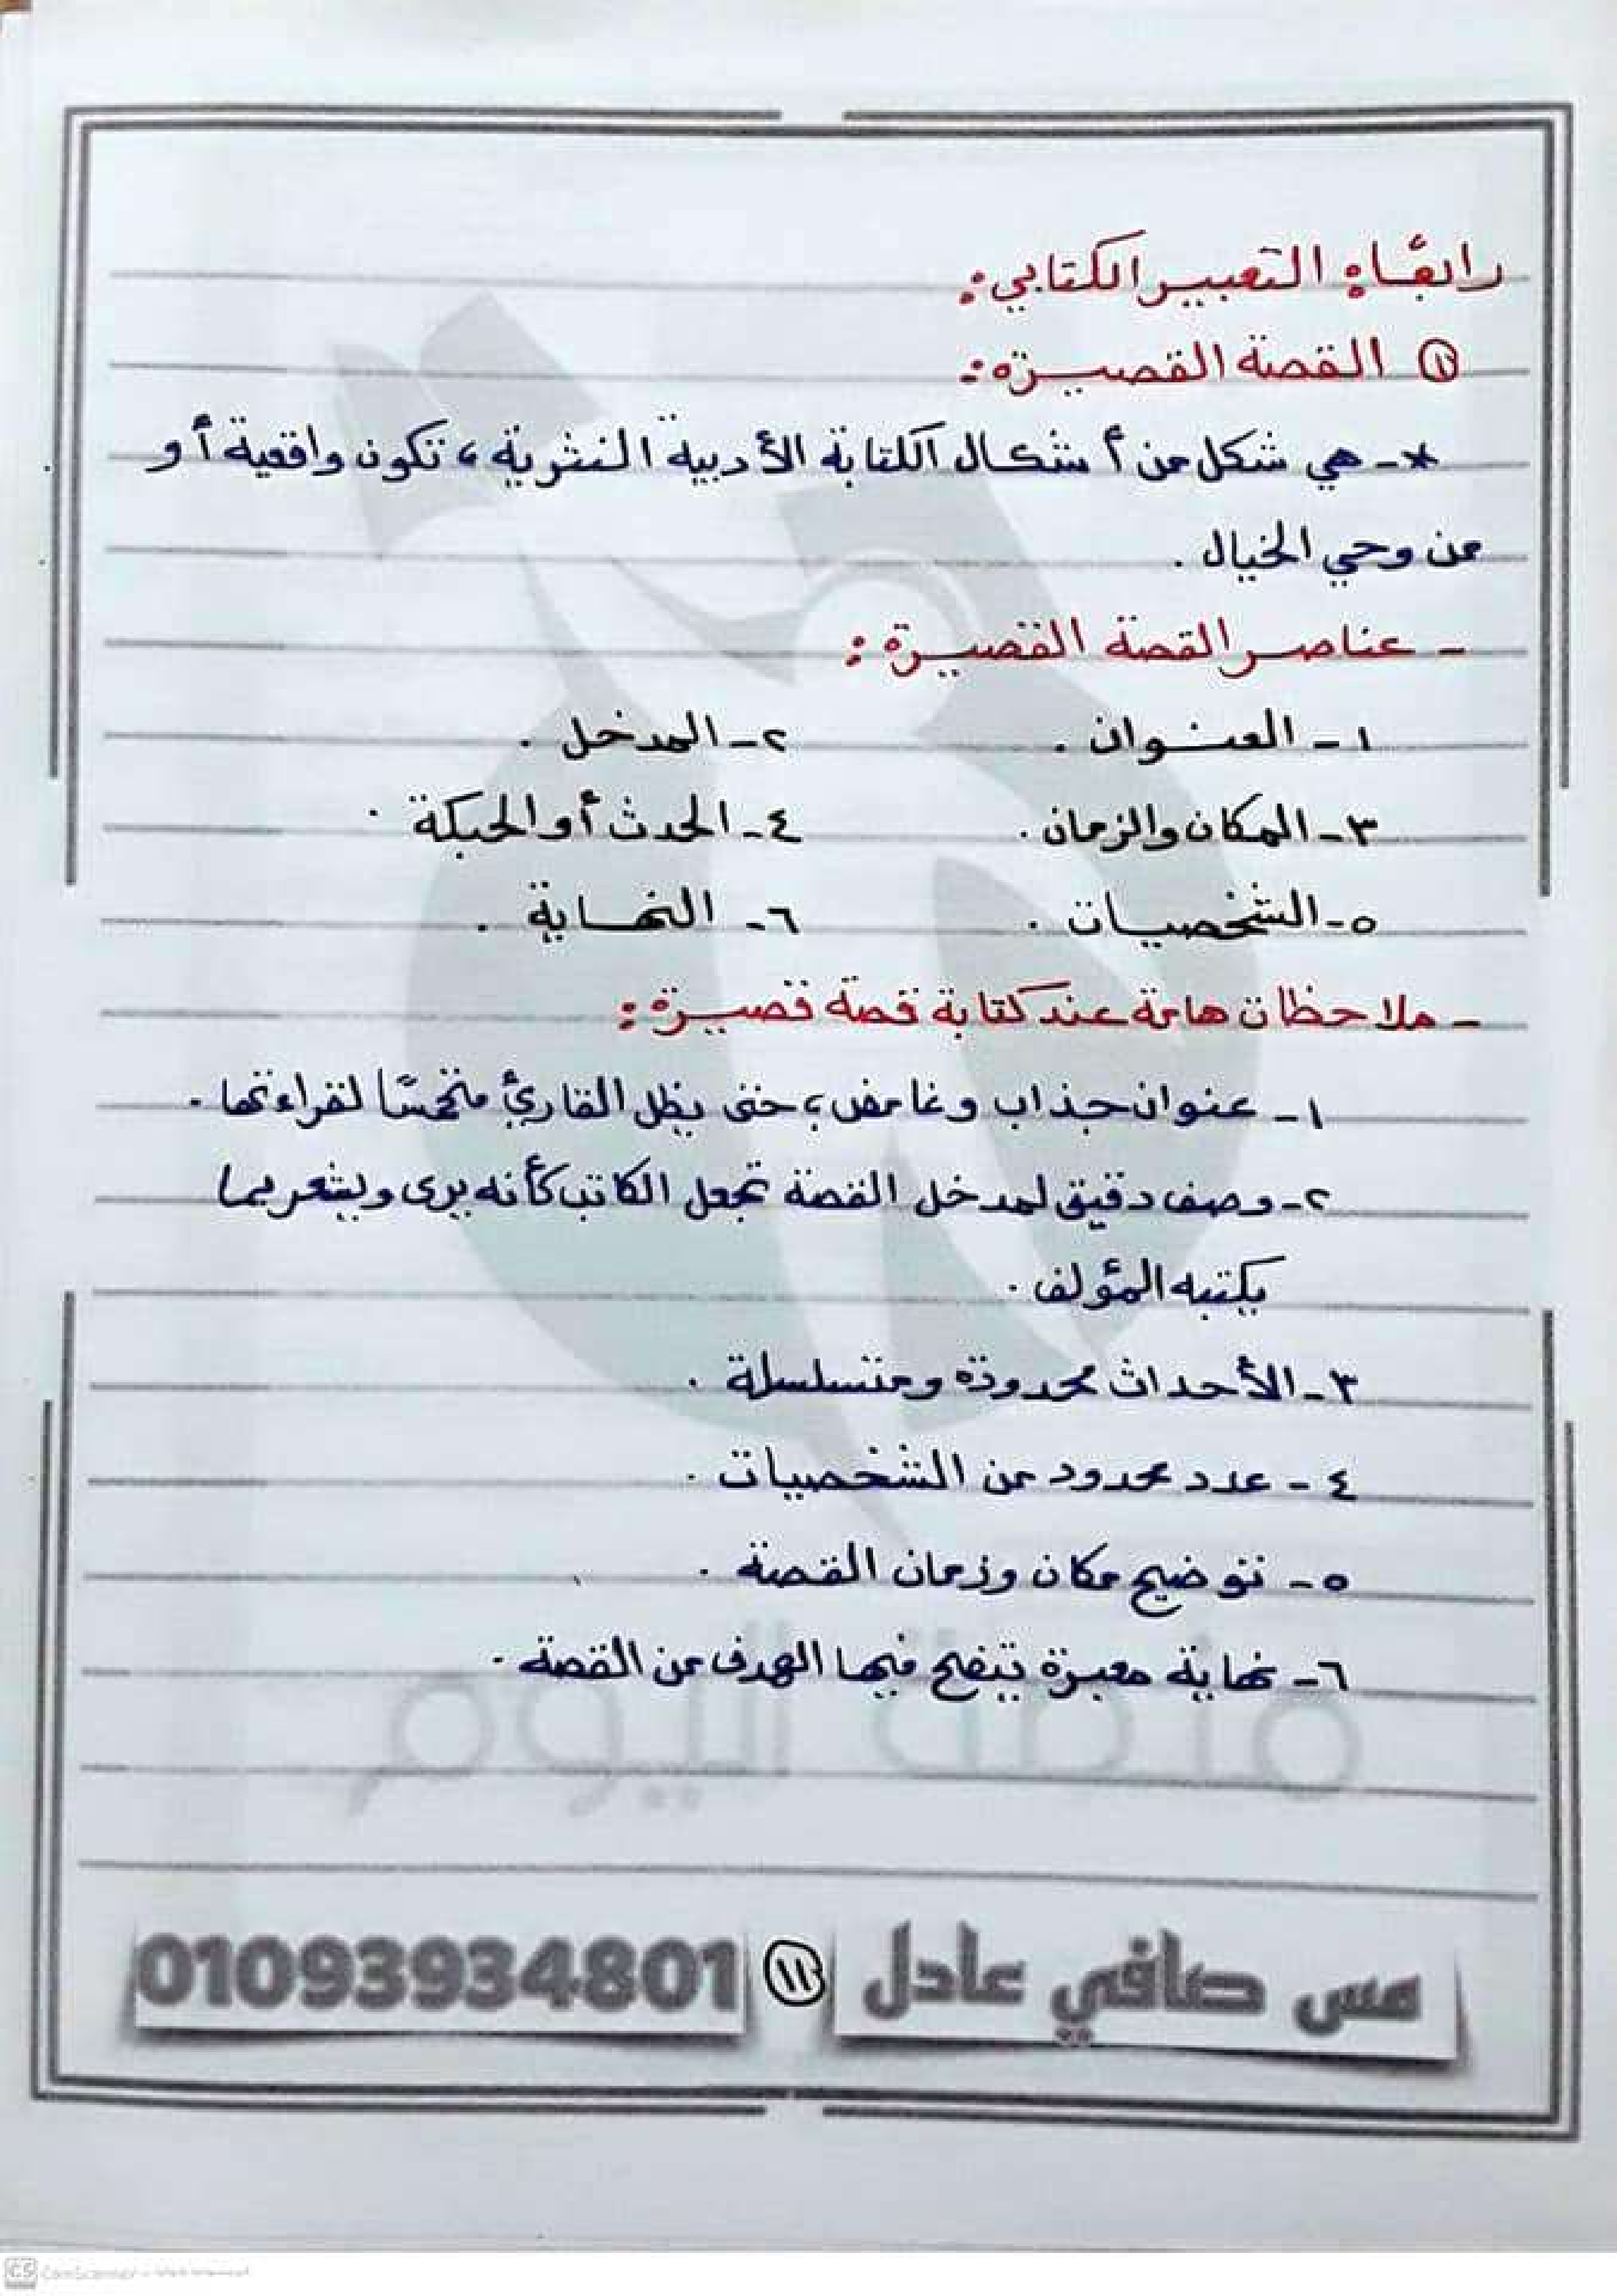 رابعًا: التعبير الكتابي:
١ القصة القصيرة:-
*- هي شكل من أشكال الكتابة الأدبية النثرية، تكون واقعية أو
من وحي الخيال.
- عناصر القصة القصيرة:
١- العنوان. ٢- المدخل.
٣- المكان والزمان. ٤- الحدث أو الحبكة.
٥- الشخصيات. ٦- النهاية.
- ملاحظات هامة عند كتابة قصة قصيرة:
١- عنوان جذاب وغامض، حتى يظل القارئ متحمسًا لقراءتها.
٢- وصف دقيق لمدخل القصة تجعل الكاتب كأنه يرى ويشعر بما
يكتبه المؤلف.
٣- الأحداث محدودة ومتسلسلة.
٤- عدد محدود من الشخصيات.
٥- توضيح مكان وزمان القصة.
٦- نهاية معبرة يتضح فيها الهدف من القصة.
منصة اليوم
مس صافي عادل ١١ 01093934801
CS CamScanner